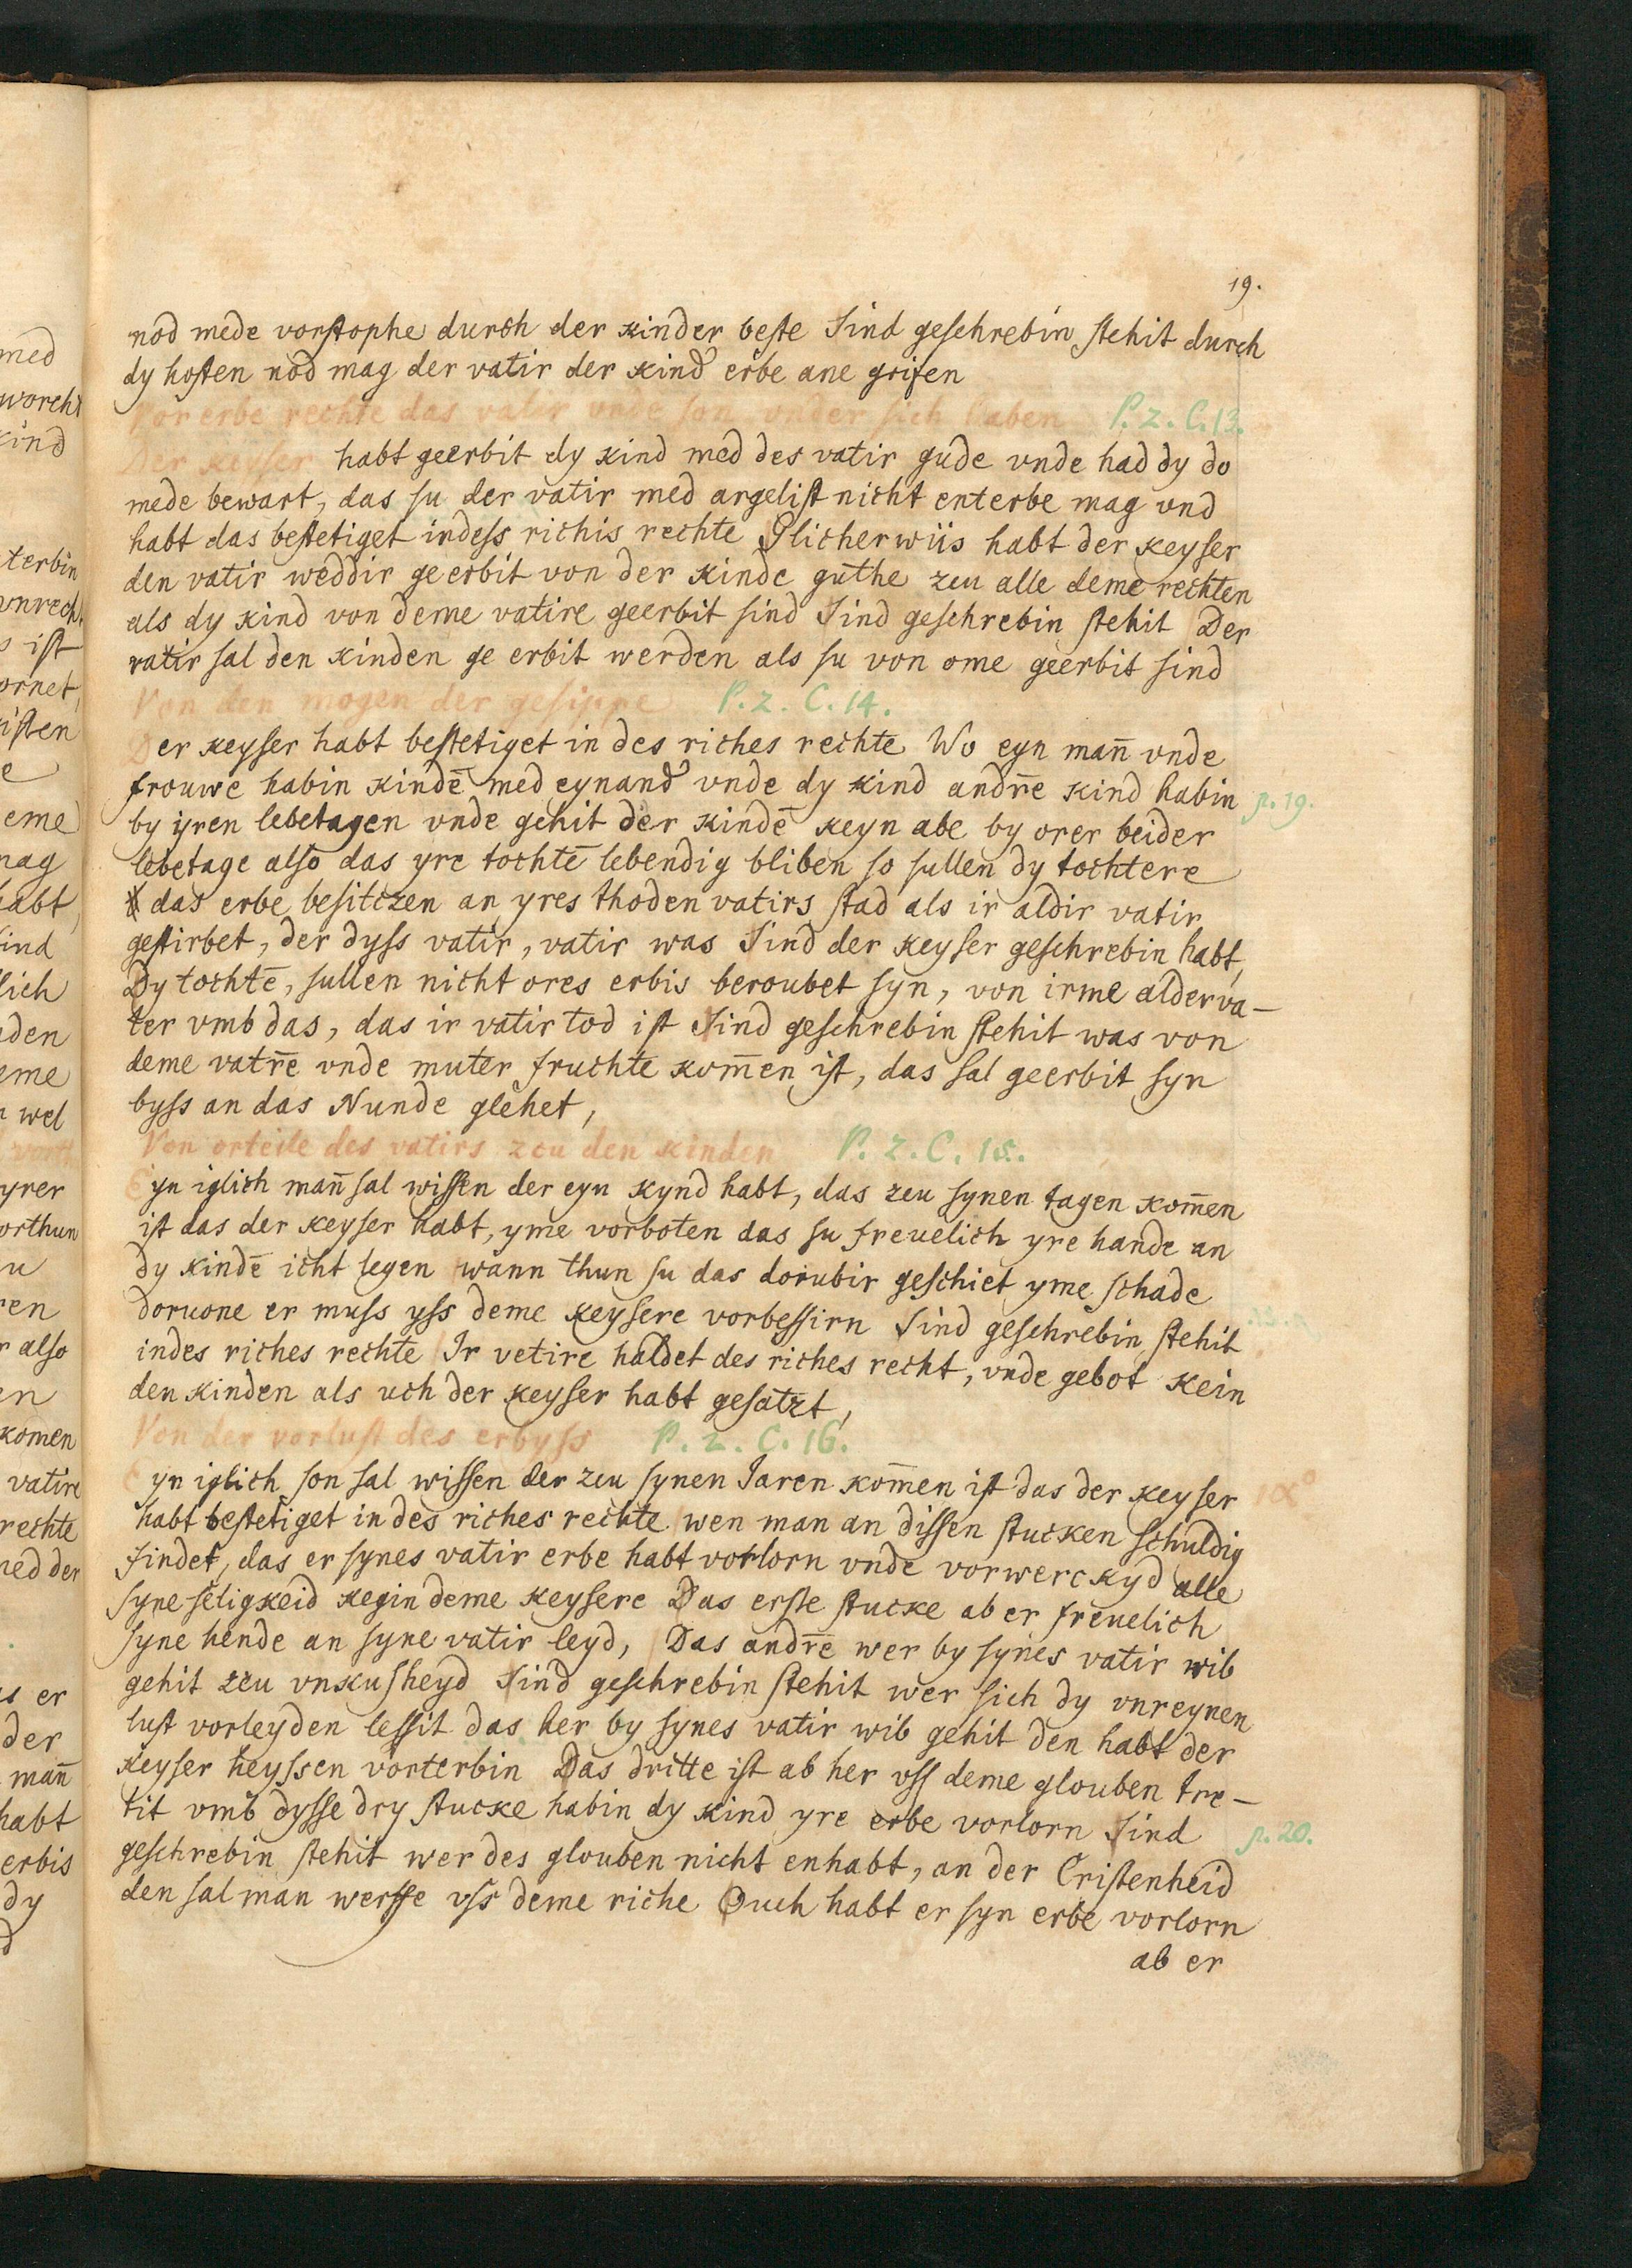 19.
nod mede vorstophe durch der kinder beste Sind geschrebin stehit durch
dy hosten nod mag der vatir der kind' erbe ane grifen
Vor erbe rechte das vatir vnde son vnder sich haben P. 2. C. 13.
Der keyser habt geerbit dy kind med des vatir gude vnde had dy do
mede bewart, das su der vatir med argelist nicht enterbe mag vnd
habt das bestetiget indess richis rechte Glicherwiis habt der keyser
den vatir weddir geerbit von der kinde guthe zcu alle deme rechten
als dy kind von deme vatire geerbit sind Sind geschrebin stehit Der
vatir sal den kinden ge erbit werden als su von ome geerbit sind
Von den mogen der gesippe P. 2. C. 14.
Der keyser habt bestetiget in des riches rechte Wo eyn man̄ vnde
frouwe habin kindē med eynand' vnde dy kind andr̄e kind habin p. 19.
by iren lebetagen vnde gehit der kindē keyn abe by orer beider
lebetage also das yre tochtē lebendig bliben so sullen dy tochtere
das erbe besitczen an yres thoden vatirs stad als ir aldir vatir
gestirbet, der dyss vatir, vatir was Sind der keyser geschrebin habt,
Dy tochtē, sullen nicht ores erbis beroubet syn, von irme alderva-
ter vmb das, das ir vatir tod ist Sind geschrebin stehit was von
deme vatr̄e vnde muter fruchte kom̄en ist, das sal geerbit syn
byss an das Nunde glehet,
Von orteile des vatirs zcu den kinden P. 2. C. 15.
Eyn iglich man̄ sal wissen der eyn kynd habt, das zcu synen tagen kom̄en
ist das der keyser habt, yme vorboten das su freuelich yre hande an
dy kindē icht legen wann thun su das dorubir geschiet yme schade
doruone er muss yss deme keysere vorbessirn Sind geschrebin stehit
indes riches rechte Ir vetire haldet des riches recht, vnde gebot kein
den kinden als uch der keyser habt gesatzt,
Von der vorlust des erbyss P. 2. C. 16.
Eyn iglich son sal wissen der zcu synen Jaren kom̄en ist das der keyser
habt bestetiget in des riches rechte wen man an dissen stucken schuldig
findet, das er synes vatir erbe habt vorlorn vnde vorwerckyd alle
syne seligkeid kegin deme keysere Das erste stucke ab er freuelich
syne hende an syne vatir leyd, Das andr̄e wer by synes vatir wib
gehit zcu vnkusheyd Sind geschrebin stehit wer sich dy vnreynen
lust vorleyden lessit das her by synes vatir wib gehit den habt der
keyser heyssen vorterbin Das dritte ist ab her vss deme glouben tre-
tit vmb dysse dry stucke habin dy kind yre erbe vorlorn Sind p. 20.
geschrebin stehit wer des glouben nicht enhabt, an der Cristenheid
den sal man werffe vss deme riche Ouch habt er syn erbe vorlorn
ab er